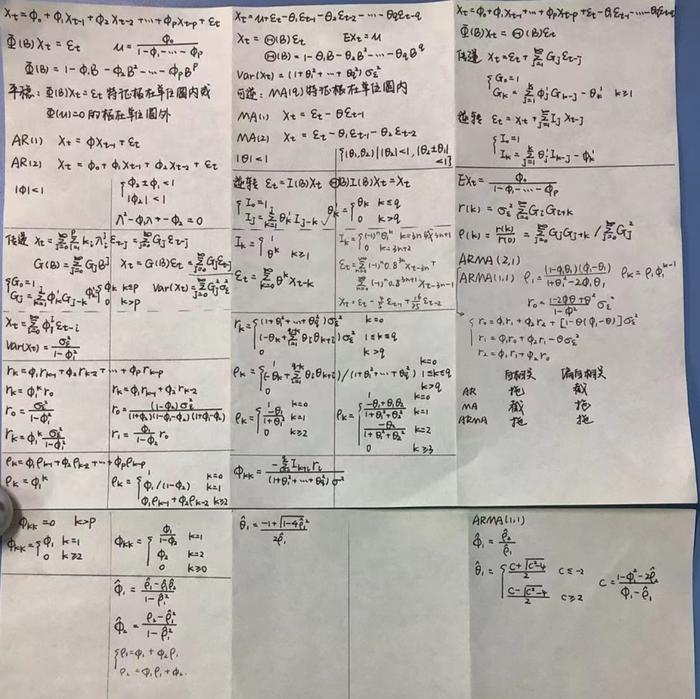 Xt = Φ0 + Φ1Xt-1 + Φ2Xt-2 + ⋯ + ΦpXt-p + εt
Φ(B)Xt = εt    μ = Φ0/(1-Φ1-⋯-Φp)
Φ(B) = 1-Φ1B-Φ2B²-⋯-ΦpB^p
平稳: Φ(B)Xt = εt 特征根在单位圆内或
Φ(u)=0的根在单位圆外
AR(1)  Xt = ΦXt-1 + εt
AR(2)  Xt = Φ0 + Φ1Xt-1 + Φ2Xt-2 + εt
|Φ|<1    { Φ2±Φ1<1
|Φ2|<1
λ²-Φ1λ-Φ2=0
G(B) = Σ GjB^j    Xt = G(B)εt = Σ Gjεt-j
{ G0=1
Gj = Σ Φ'k Gj-k    Φ'k { Φk k≤p
0 k>p    Var(Xt) = Σ Gj²σε²
Xt = Σ Φ1^i εt-i
Var(Xt) = σε²/(1-Φ1²)
rk = Φ1rk-1 + Φ2rk-2 + ⋯ + Φprk-p
rk = Φ1^k r0    rk = Φ1rk-1 + Φ2rk-2
r0 = σε²/(1-Φ1²)    r0 = (1-Φ2)σε²/((1+Φ2)(1-Φ1-Φ2)(1+Φ1-Φ2))
rk = Φ1^k σε²/(1-Φ1²)    r1 = Φ1/(1-Φ2) r0
ρk = Φ1ρk-1 + Φ2ρk-2 + ⋯ + Φpρk-p
ρk = Φ1^k    ρk = { 1 k=0
Φ1/(1-Φ2) k=1
Φ1ρk-1 + Φ2ρk-2 k≥2
Φkk = 0  k>p
Φkk = { Φ1 k=1
0 k≥2
Φkk = { Φ1/(1-Φ2) k=1
Φ2 k=2
0 k≥0
Φ̂1 = (ρ̂1-ρ̂1ρ̂2)/(1-ρ̂1²)
Φ̂2 = (ρ̂2-ρ̂1²)/(1-ρ̂1²)
{ ρ1 = Φ1 + Φ2ρ1
ρ2 = Φ1ρ1 + Φ2.
Xt = μ + εt - θ1εt-1 - θ2εt-2 - ⋯ - θqεt-q
Xt = Θ(B)εt    EXt = μ
Θ(B) = 1-θ1B-θ2B²-⋯-θqB^q
Var(Xt) = (1+θ1²+⋯+θq²)σε²
可逆: MA(q)特征根在单位圆内
MA(1)  Xt = εt - θεt-1
MA(2)  Xt = εt - θ1εt-1 - θ2εt-2
|θ|<1    {(θ1,θ2)| |θ2|<1, |θ2±θ1|<1}
逆转 εt = I(B)Xt  Θ(B)I(B)Xt = Xt
{ I0=1
Ij = Σ θ'k Ij-k    θ'k = { θk k≤q
0 k>q
Ik = { 1
θ^k k≥1
εt = Σ θ^k Xt-k
rk = { (1+θ1²+⋯+θq²)σε² k=0
(-θk+Σ θiθk+i)σε² 1≤k≤q
0 k>q
ρk = { 1 k=0
(-θk+Σ θiθk+i)/(1+θ1²+⋯+θq²) 1≤k≤q
0 k>q
ρk = { 1 k=0
-θ/(1+θ²) k=1
0 k≥2
ρk = { 1 k=0
(-θ1+θ1θ2)/(1+θ1²+θ2²) k=1
-θ2/(1+θ1²+θ2²) k=2
0 k≥3
θ̂1 = (-1+√(1-4ρ̂1²))/(2ρ̂1)
Xt = Φ0 + Φ1Xt-1 + ⋯ + ΦpXt-p + εt - θ1εt-1 - ⋯ - θqεt-q
Φ(B)Xt = Θ(B)εt
传递 Xt = εt + Σ Gjεt-j
{ G0=1
Gk = Σ Φ'j Gk-j - θ'k k≥1
逆转 εt = Xt + Σ IjXt-j
{ I0=1
Ik = Σ θ'j Ik-j - Φ'k
EXt = Φ0/(1-Φ1-⋯-Φp)
r(k) = σε² Σ GiGi+k
ρ(k) = r(k)/r(0) = Σ GjGj+k / Σ Gj²
ARMA(2,1)
ARMA(1,1)  ρ1 = (1-Φ1θ1)(Φ1-θ1)/(1+θ1²-2Φ1θ1)  ρk = ρ1Φ1^(k-1)
r0 = (1-2Φθ+θ²)/(1-Φ²) σε²
{ r0 = Φ1r1 + Φ2r2 + [1-θ(Φ1-θ)]σε²
r1 = Φ1r0 + Φ2r1 - θσε²
r2 = Φ1r1 + Φ2r0
自相关  偏自相关
AR 拖 截
MA 截 拖
ARMA 拖 拖
ARMA(1,1)
Φ̂1 = ρ̂2/ρ̂1
θ̂1 = { (C+√(C²-4))/2 C≤-2
(C-√(C²-4))/2 C≥2
C = (1-Φ1²-2ρ̂2)/(Φ1-ρ̂1)